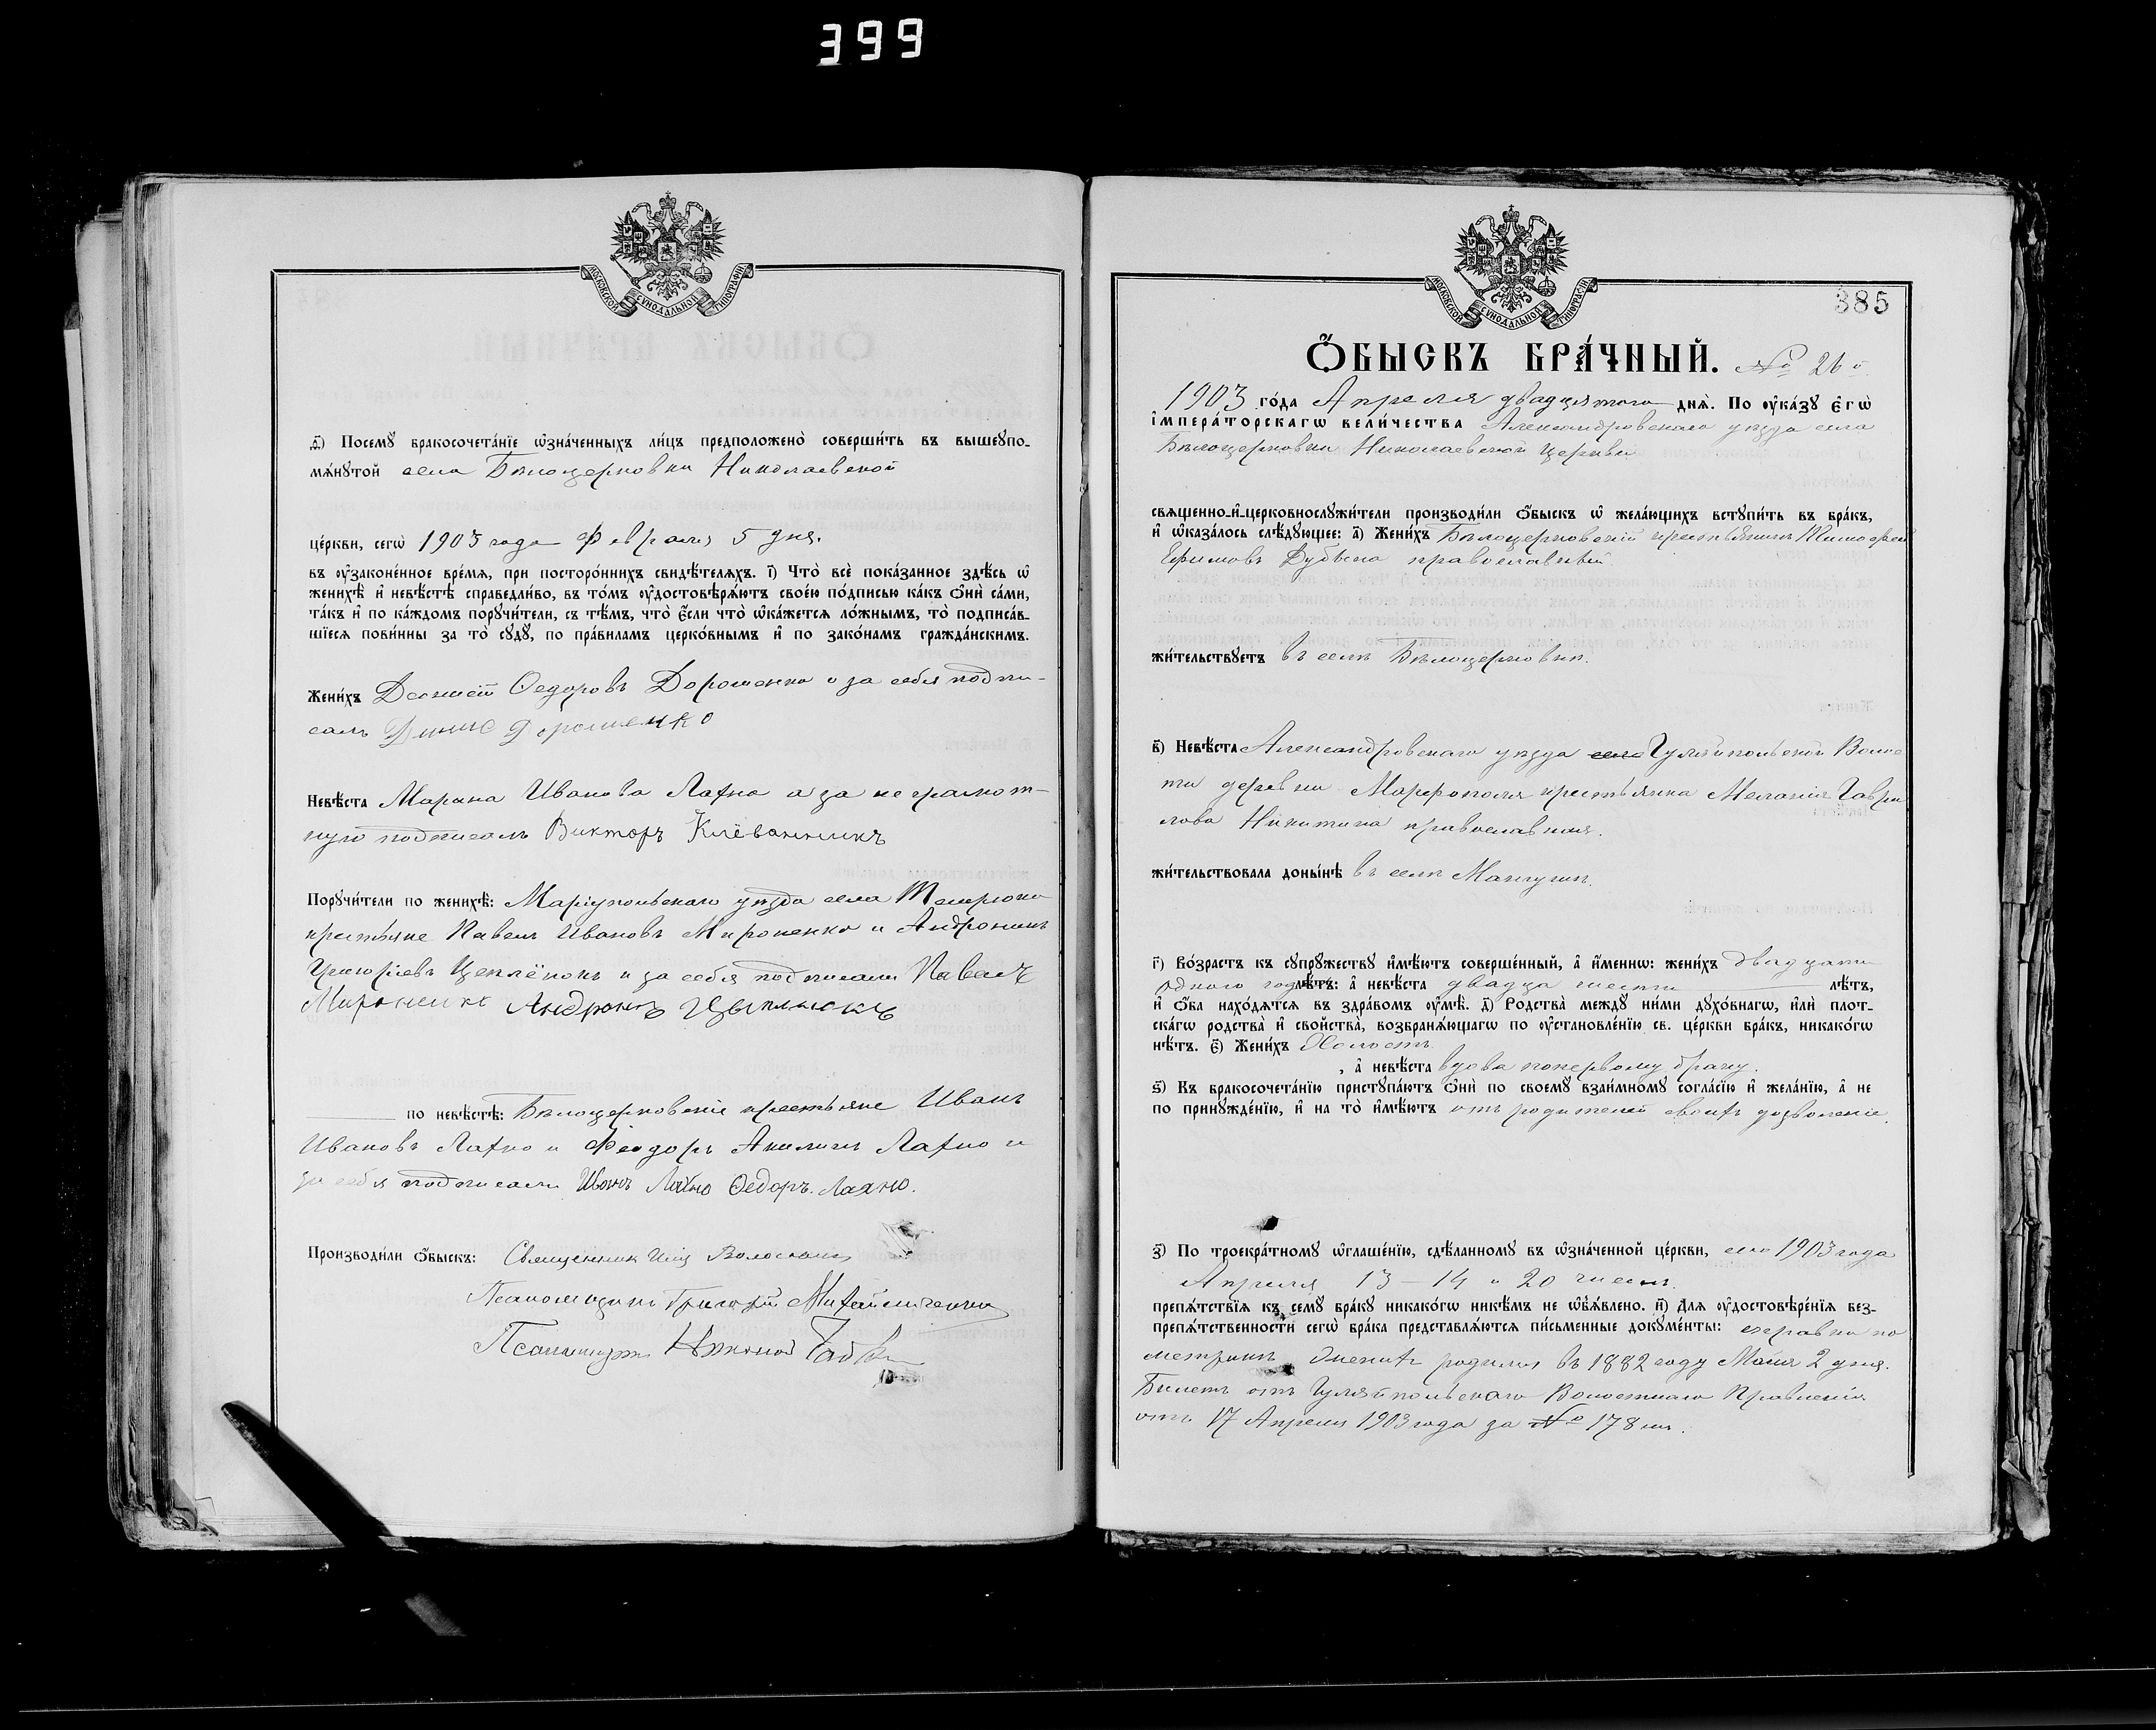 399
МОСКОВСКОЙ СѴНОДАЛЬНОЙ ТИПОГРАФІИ
ѳ҃) Посемꙋ̀ бракосочета́нїе ѡ҆зна́ченныхъ ли́цъ предположено̀ соверши́ть въ вышеꙋпо-
мѧ́нꙋтой села Бѣлоцерковки Николаевской
це́ркви, сегѡ̀ 1903 года Февраля 5 дня.
въ ᲂу҆зако́ненное вре́мѧ, при посторо́ннихъ свидѣ́телѧхъ. і҃) Что̀ всѐ пока́занное здѣ́сь ѡ҆
женихѣ̀ и҆ невѣ́стѣ справедли́во, въ то́мъ ᲂу҆достовѣрѧ́ютъ свое́ю по́дписью ка́къ ѻ҆нѝ са́ми,
та́къ и҆ по ка́ждомъ порꙋчи́тели, съ тѣ́мъ, что̀ є҆́сли что̀ ѡ҆ка́жетсѧ ло́жнымъ, то̀ подписа́в-
шїесѧ пови́нны за то̀ сꙋдꙋ̀, по пра́виламъ церко́внымъ и҆ по зако́намъ гражда́нскимъ.
Жени́хъ Ѳедоровъ Дорошенко и за себя подпи-
салъ Дорошенко
Невѣ́ста Марина Иванова Лахно а за неграмот-
ную подписалъ Викторъ Клёванникъ
Порꙋчи́тели по женихѣ̀: Маріупольскаго уѣзда села Темрюка
крестьяне Павелъ Ивановъ Мироненко и Андроникъ
Григоріевъ Цеплёнокъ и за себя подписали Павелъ
Мироненко Андронъ
по невѣ́стѣ: Бѣлоцерковскіе крестьяне Иванъ
Ивановъ Лахно и Феодоръ Лахно и
за себя подписали Иванъ Лахно Ѳедоръ Лахно.
Производи́ли ѻ҆́быскъ: Священник
Псаломщикъ Григорій Михайличенко
Псаломщикъ
МОСКОВСКОЙ СѴНОДАЛЬНОЙ ТИПОГРАФІИ
385
Ѻ҆́БЫСКЪ БРА́ЧНЫЙ. № 26й
1903 го́да Апреля двадцятого днѧ̀. По ᲂу҆ка́зꙋ є҆гѡ̀
і҆мпера́торскагѡ вели́чества Александровскаго уѣзда села
Бѣлоцерковки Николаевской церкви
свѧще́нно-и҆-церковнослꙋжи́тели производи́ли ѻ҆́быскъ ѡ҆ жела́ющихъ встꙋпи́ть въ бра́къ,
и҆ ѡ҆каза́лось слѣ́дꙋющее: а҃) Жени́хъ Бѣлоцерковскій крестьянинъ Тимофей
Ефимовъ православный.
жи́тельствꙋетъ въ селѣ Бѣлоцерковкѣ.
в҃) Невѣ́ста Александровскаго уѣзда села Гуляйпольской Волос
ти деревни Марфополя крестьянка Меланія Гаври
лова Никитина православная.
жи́тельствовала доны́нѣ въ селѣ Мангушѣ.
г҃) Во́зрастъ къ сꙋпрꙋ́жествꙋ и҆мѣ́ютъ соверше́нный, а҆ и҆́менно: жени́хъ двадцати
одного год лѣ́тъ: а҆ невѣ́ста двадца шести лѣ́тъ,
и҆ ѻ҆́ба нахо́дѧтсѧ въ здра́вомъ ᲂу҆мѣ̀. д҃) Родства̀ междꙋ̀ ни́ми дꙋхо́внагѡ, и҆лѝ плот-
ска́гѡ родства̀ и҆ сво́йства̀, возбранѧ́ющагѡ по ᲂу҆становле́нїю св. це́ркви бра́къ, никако́гѡ
нѣ́тъ. є҃) Жени́хъ Холостъ
, а҆ невѣ́ста вдова поперволу браку.
ѕ҃) Къ бракосочета́нїю пристꙋпа́ютъ ѻ҆нѝ по своемꙋ̀ взаи́мномꙋ согла́сїю и҆ жела́нїю, а҆ не
по принꙋжде́нїю, и҆ на то̀ и҆мѣ́ютъ отъ родителей своихъ дозволеніе.
з҃) По троекра́тномꙋ ѡ҆глаше́нїю, сдѣ́ланномꙋ въ ѡ҆зна́ченной це́ркви, сего 1903 года
Апреля 13 – 14 и 20 чиселъ.
препѧ́тствїѧ къ семꙋ̀ бра́кꙋ никако́гѡ никѣ́мъ не ѡ҆б̾ѧ́влено. и҃) Для ᲂу҆достовѣре́нїѧ без-
препѧ́тственности сегѡ̀ бра́ка представлѧ́ютсѧ пи́сьменные докꙋме́нты: справка по
метрикѣ Женихъ родился въ 1882 году Мая 2 дня.
Билетъ отъ Гуляйпольскаго Волостнаго Правленія
отъ 17 Апреля 1903 года за № 178 мъ.